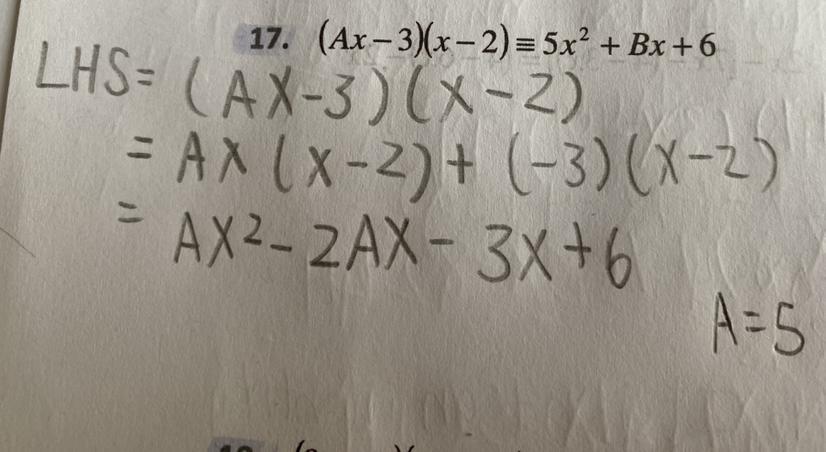 17. (Ax − 3)(x − 2) ≡ 5x² + Bx + 6
LHS = (AX-3)(X-2)
= AX(X-2)+(-3)(X-2)
= AX²-2AX-3X+6
A=5